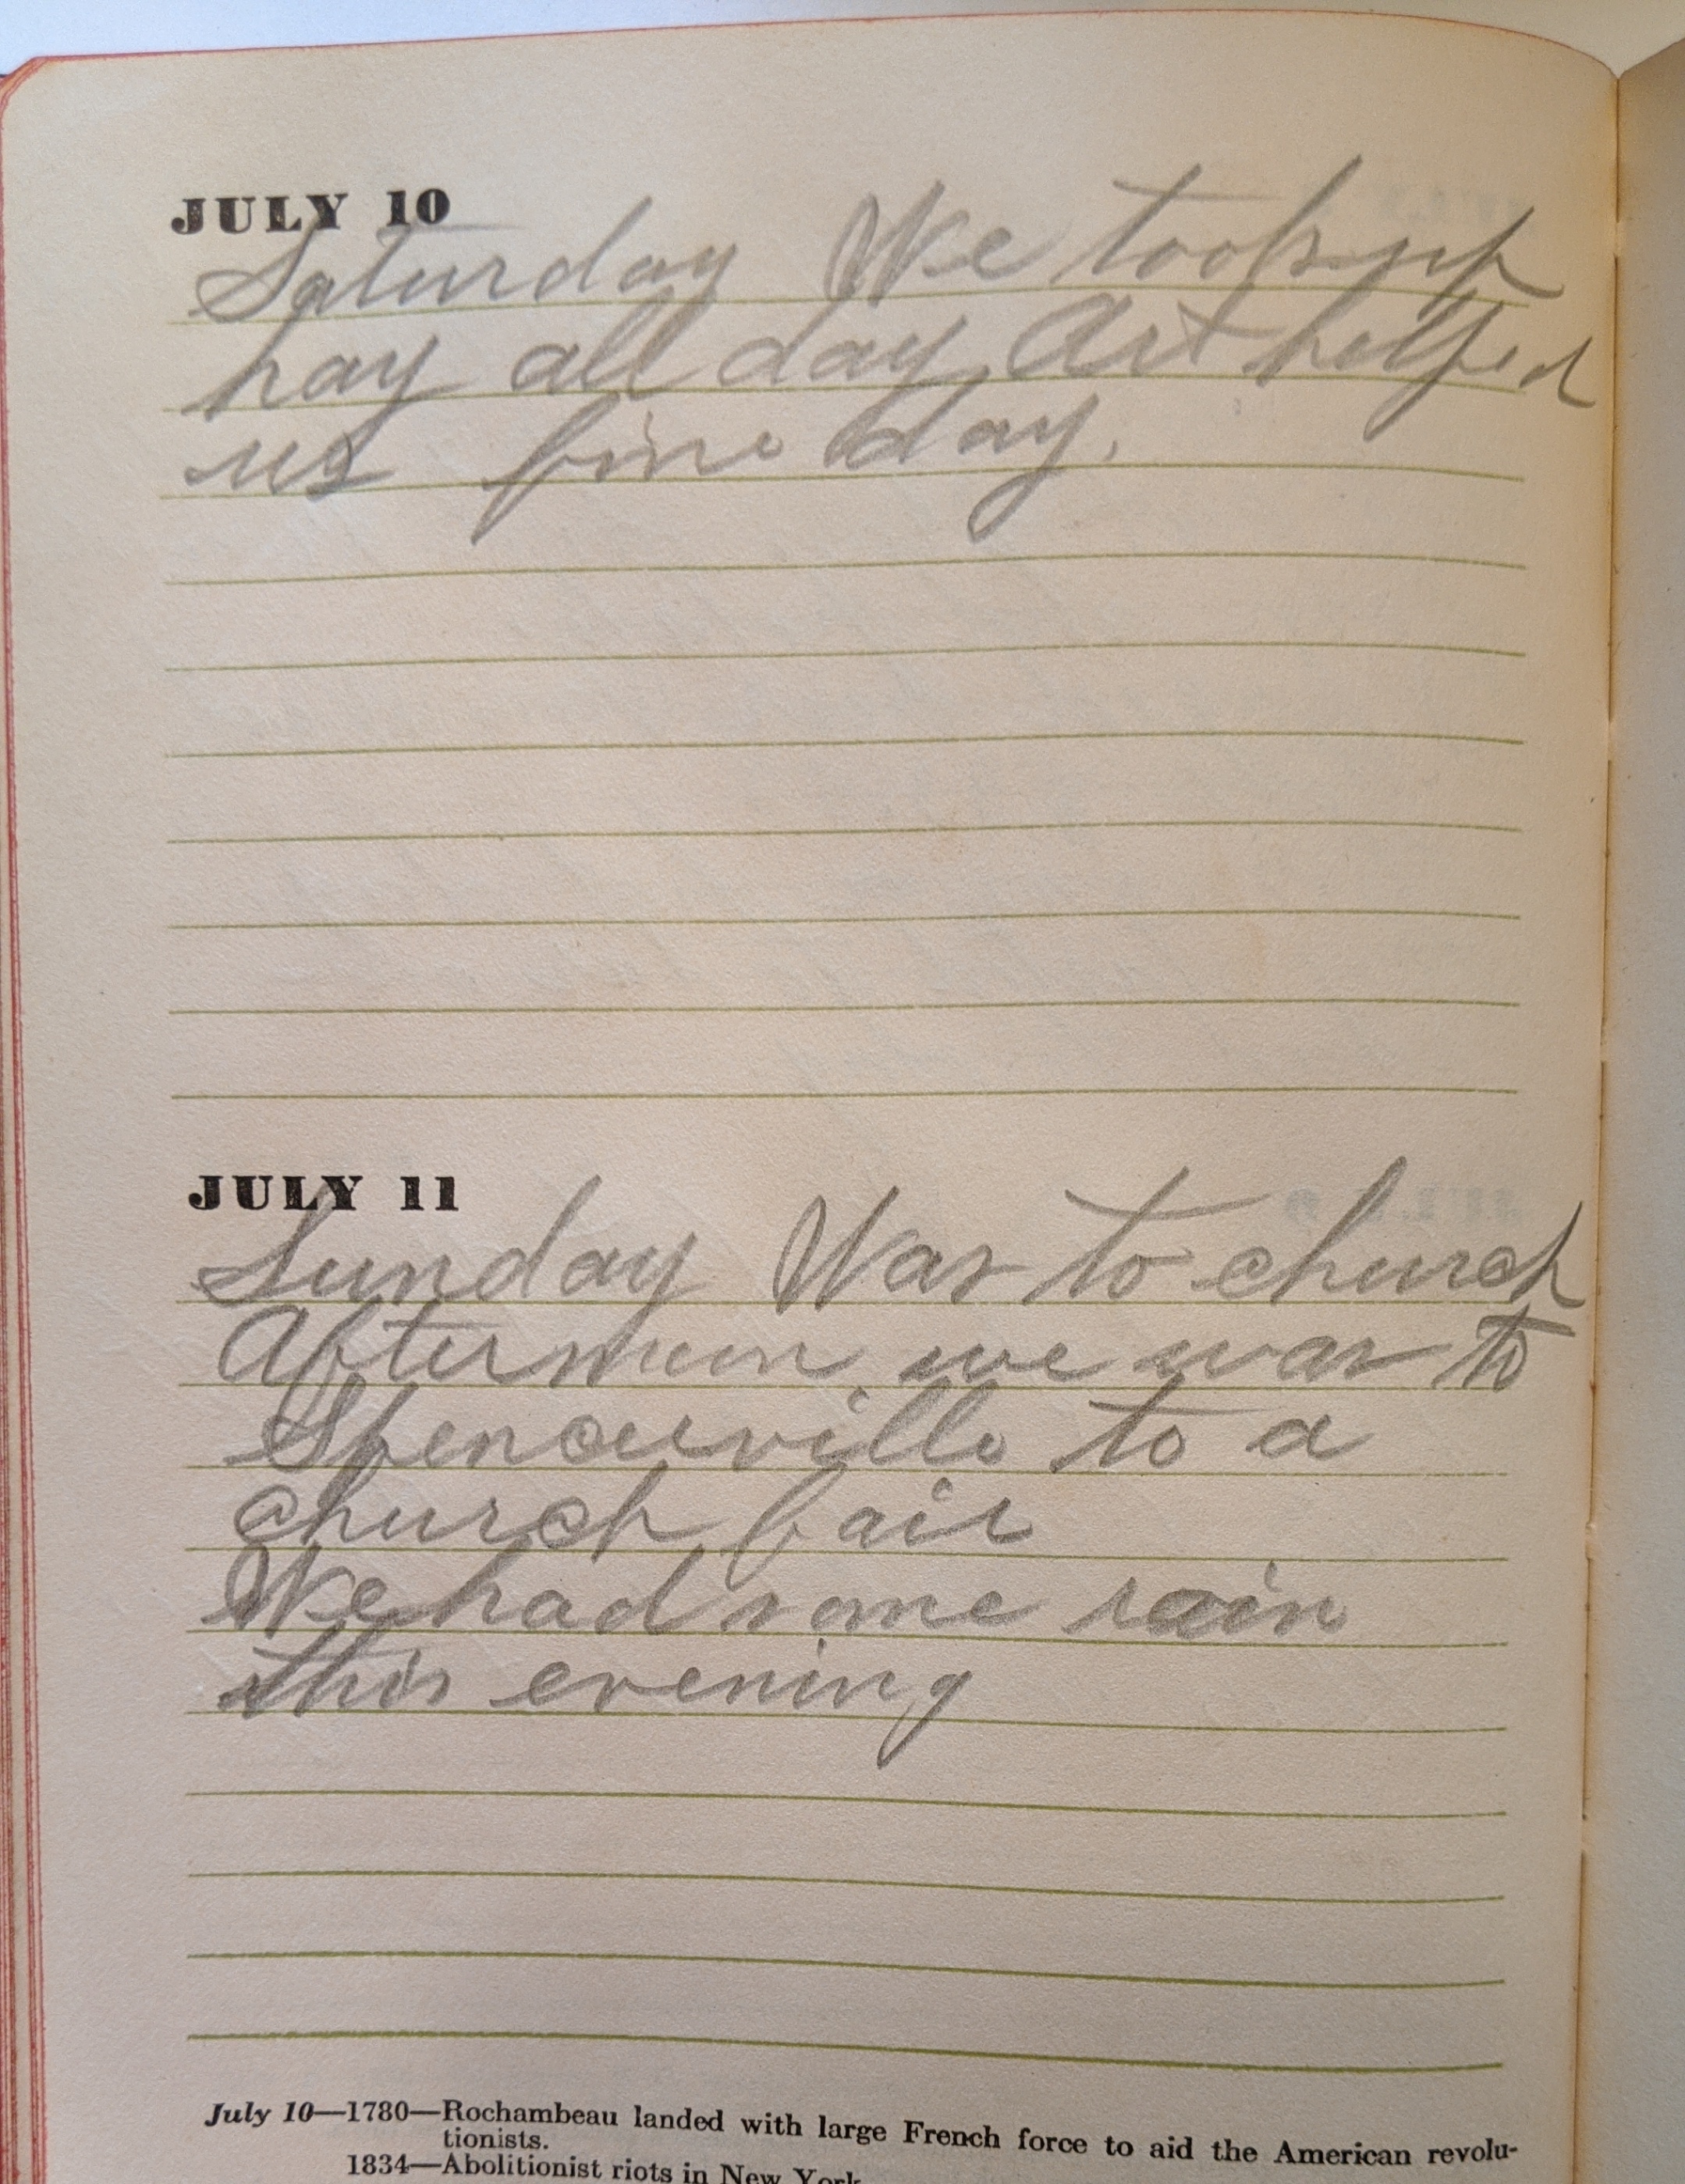 JULY 10
Saturday We took up
hay all day, Art helped
us fine day.
JULY 11
Sunday Was to church
Afternoon we was to
Spencerville to a
church fair
We had some rain
this evening
July 10—1780—Rochambeau landed with large French force to aid the American revolu-
tionists.
1834—Abolitionist riots in New York